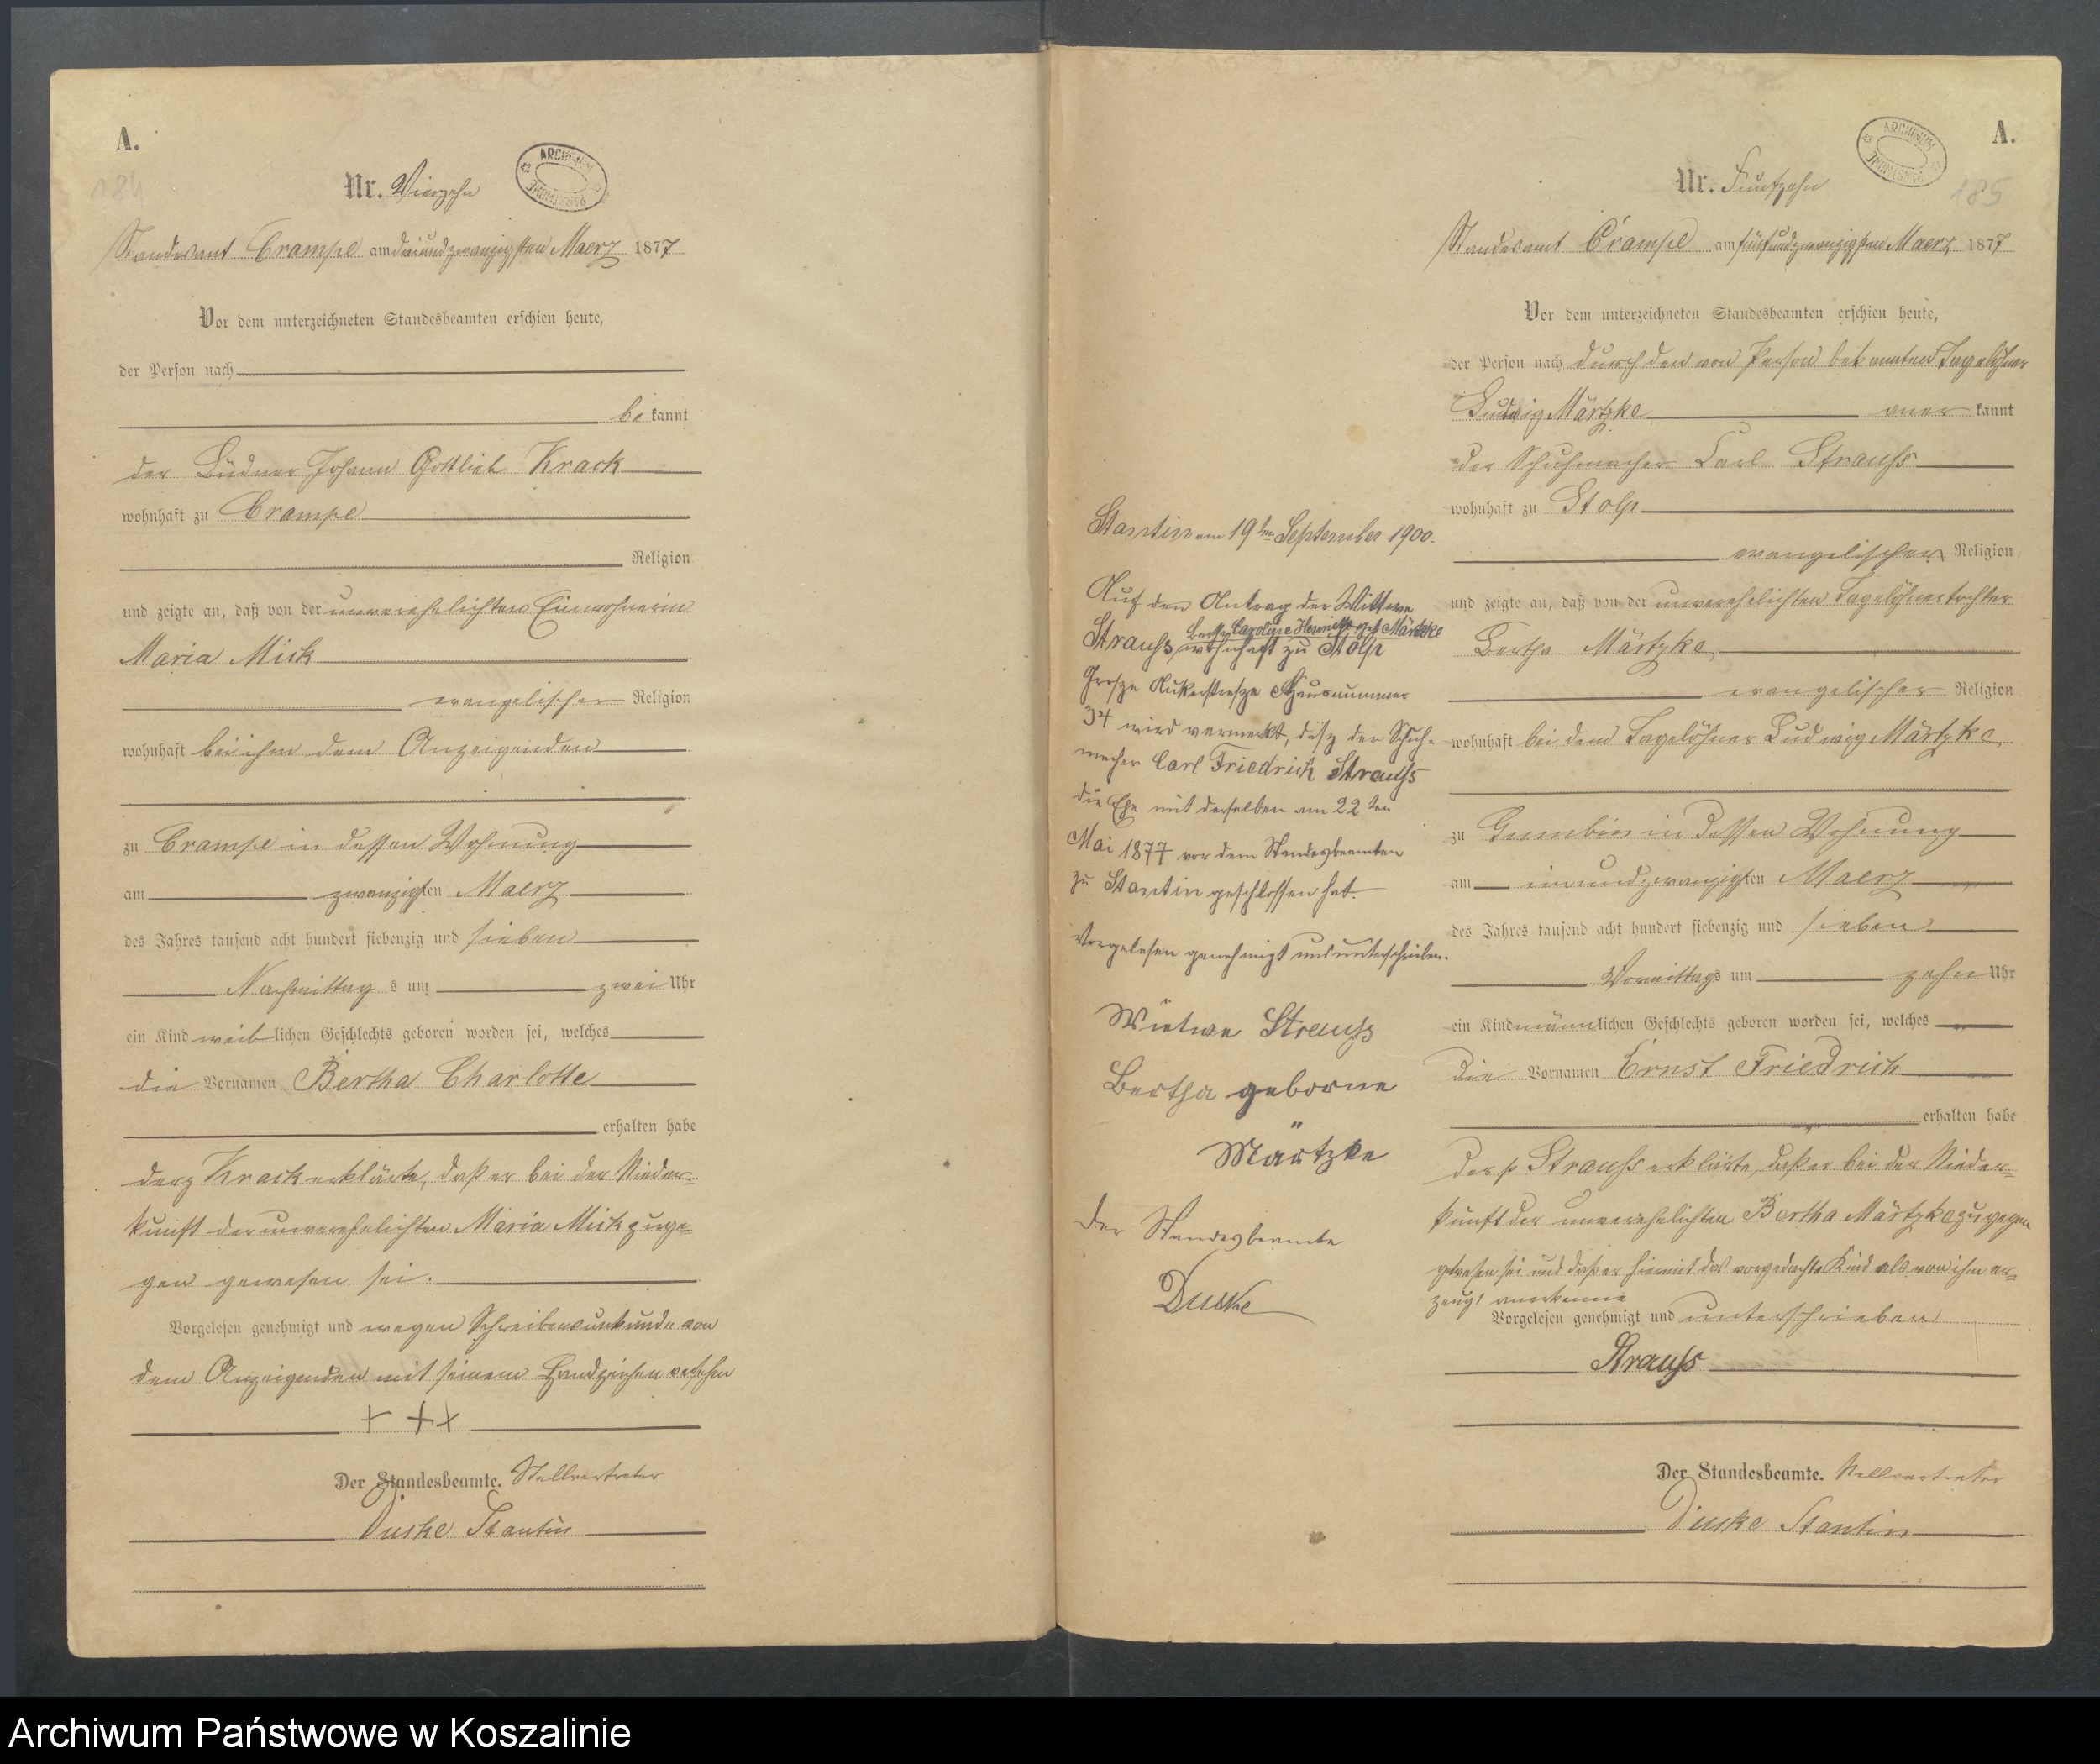 A.
184
Nr. Vierzehn
ARCHIWUM PAŃSTWOWE
Standesamt Crampe am dreiundzwanzigsten Maerz 1877
Vor dem unterzeichneten Standesbeamten erschien heute,
der Person nach
bekannt
der Büdner Johann Gottlieb Krack
wohnhaft zu Crampe
Religion
und zeigte an, daß von der unverehelichten Einwohnerin
Maria Mick
evangelischer Religion
wohnhaft bei ihm dem Anzeigenden
zu Crampe in dessen Wohnung
am zwanzigsten Maerz
des Jahres tausend acht hundert siebenzig und sieben
Nachmittags um zwei Uhr
ein Kind weiblichen Geschlechts geboren worden sei, welches
die Vornamen Bertha Charlotte
erhalten habe
Krack erklärte, daß er bei der Nieder-
kunft der unverehelichten Maria Mick zuge-
gen gewesen sei.
Vorgelesen genehmigt und wegen Schreibensunkunde von
dem Anzeigenden mit seinem Handzeichen versehen
+ + +
Der Standesbeamte. Stellvertreter
Duske Stantin
Stantin am 19ten September 1900.
Auf den Antrag der Wittwe
Bertha Caroline Henriette geb Märtzke
Strauss, wohnhaft zu Stolp
Grosze Hausnummer
34 wird vermerkt, dasz der Schuh-
macher Carl Friedrich Strauss
die Ehe mit derselben am 22ten
Mai 1877 vor dem Standesbeamten
zu Stantin geschlossen hat.
Vorgelesen genehmigt und unterschrieben.
Wietwe Strauss
Bertha geborne
Märtzke
Der Standesbeamte
Duske
A.
185
Nr. Fünfzehn
ARCHIWUM PAŃSTWOWE
Standesamt Crampe am fünfundzwanzigsten Maerz 1877
Vor dem unterzeichneten Standesbeamten erschien heute,
der Person nach durch den von Person bekannten Tagelöhner
Ludwig Märtzke anerkannt
der Schuhmacher Carl Strauss
wohnhaft zu Stolp
evangelischer Religion
und zeigte an, daß von der unverehelichten Tagelöhnertochter
Bertha Märtzke
evangelischer Religion
wohnhaft bei dem Tagelöhner Ludwig Märtzke
zu Gumbin in dessen Wohnung
am einundzwanzigsten Maerz
des Jahres tausend acht hundert siebenzig und sieben
Vormittags um zehn Uhr
ein Kind männlichen Geschlechts geboren worden sei, welches
die Vornamen Ernst Friedrich
erhalten habe
Strauss erklärte, daß er bei der Nieder-
kunft der unverehelichten Bertha Märtzke zugegen
gewesen sei und daß er hiermit das vorgedachte Kind als von ihm er-
zeugt anerkenne
Vorgelesen genehmigt und unterschrieben
Strauss
Der Standesbeamte. Stellvertreter
Duske Stantin
Archiwum Państwowe w Koszalinie